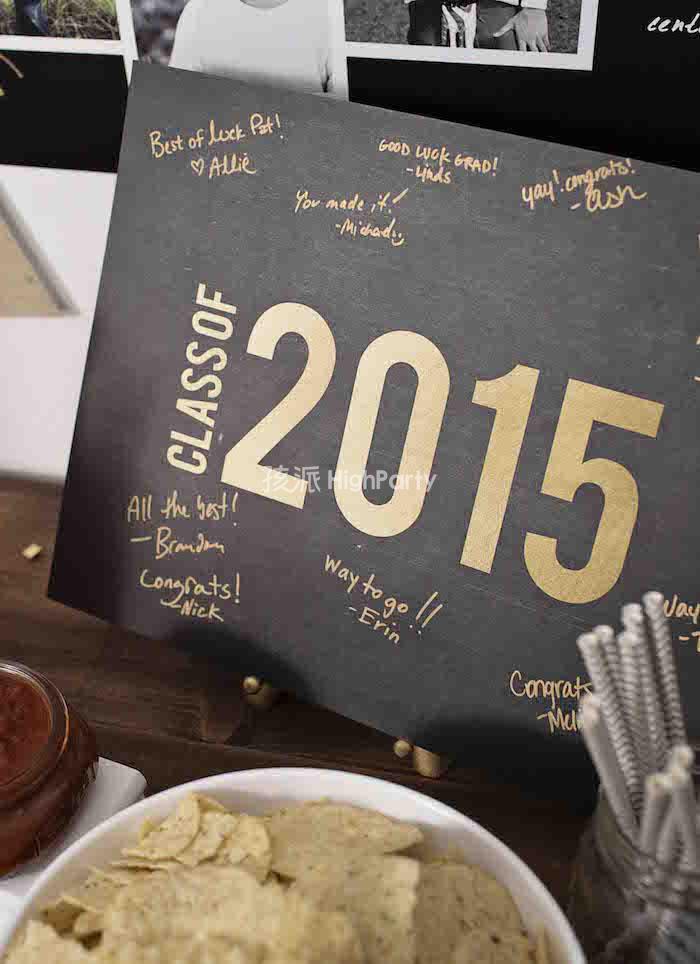 Best of luck Pat!
♡ Allie
GOOD LUCK GRAD!
You made it!
-Michael
yay! congrats!
-Ash
CLASS OF
2015
孩派 HighParty
All the best!
-Brandon
Congrats!
-Nick
Way to go!!
-Erin
Congrats